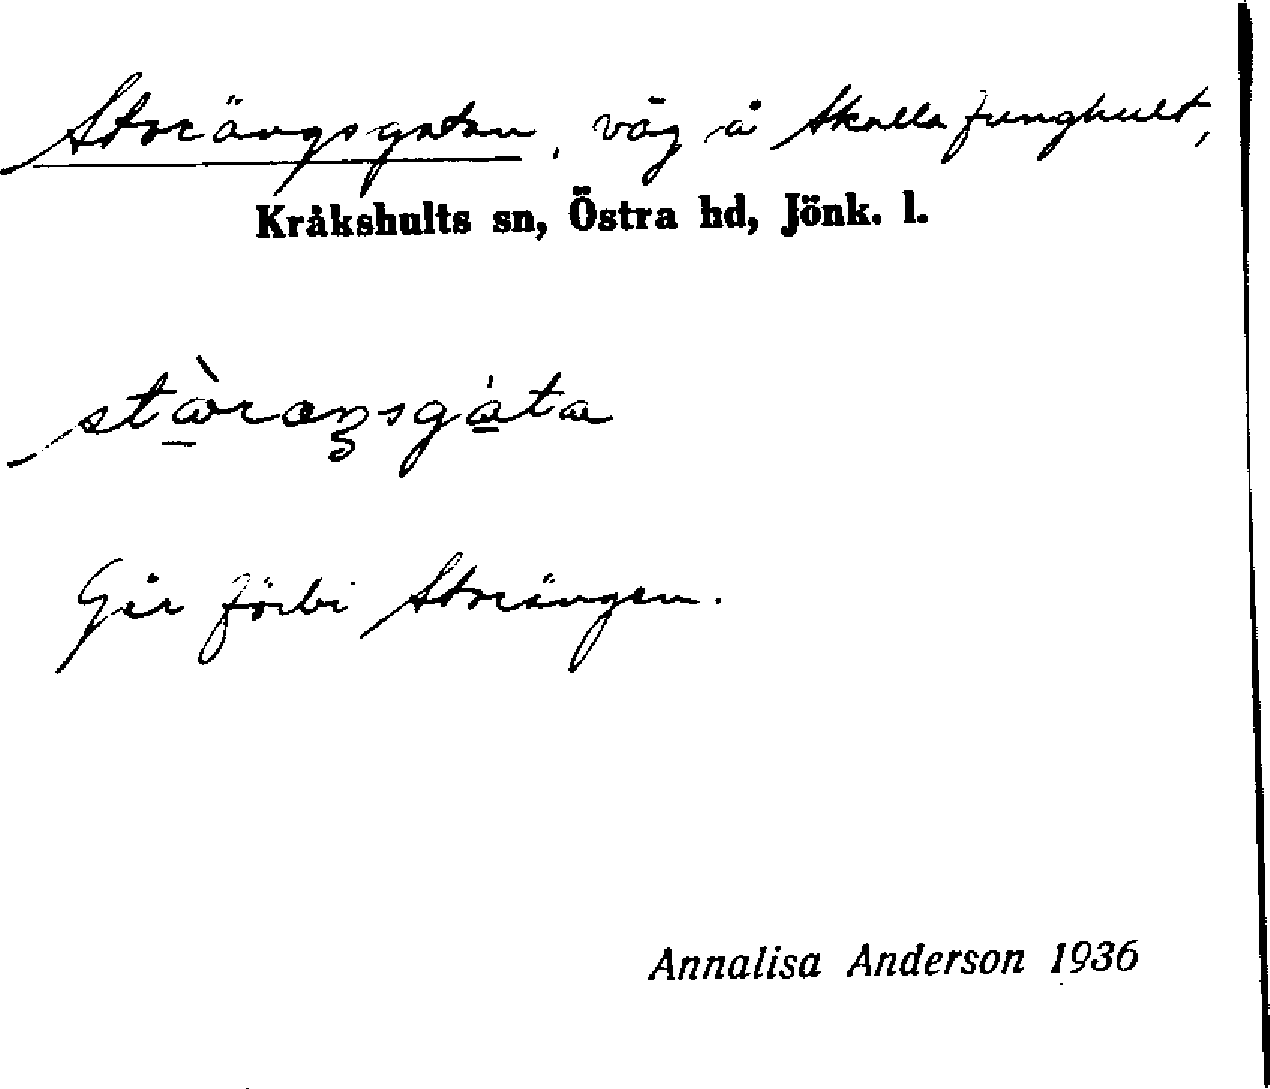 Storängsgatan, väg å Skallafunghult,
Kråkshults sn, Östra hd, Jönk. l.
Går förbi Storängen.
Annalisa Anderson 1936